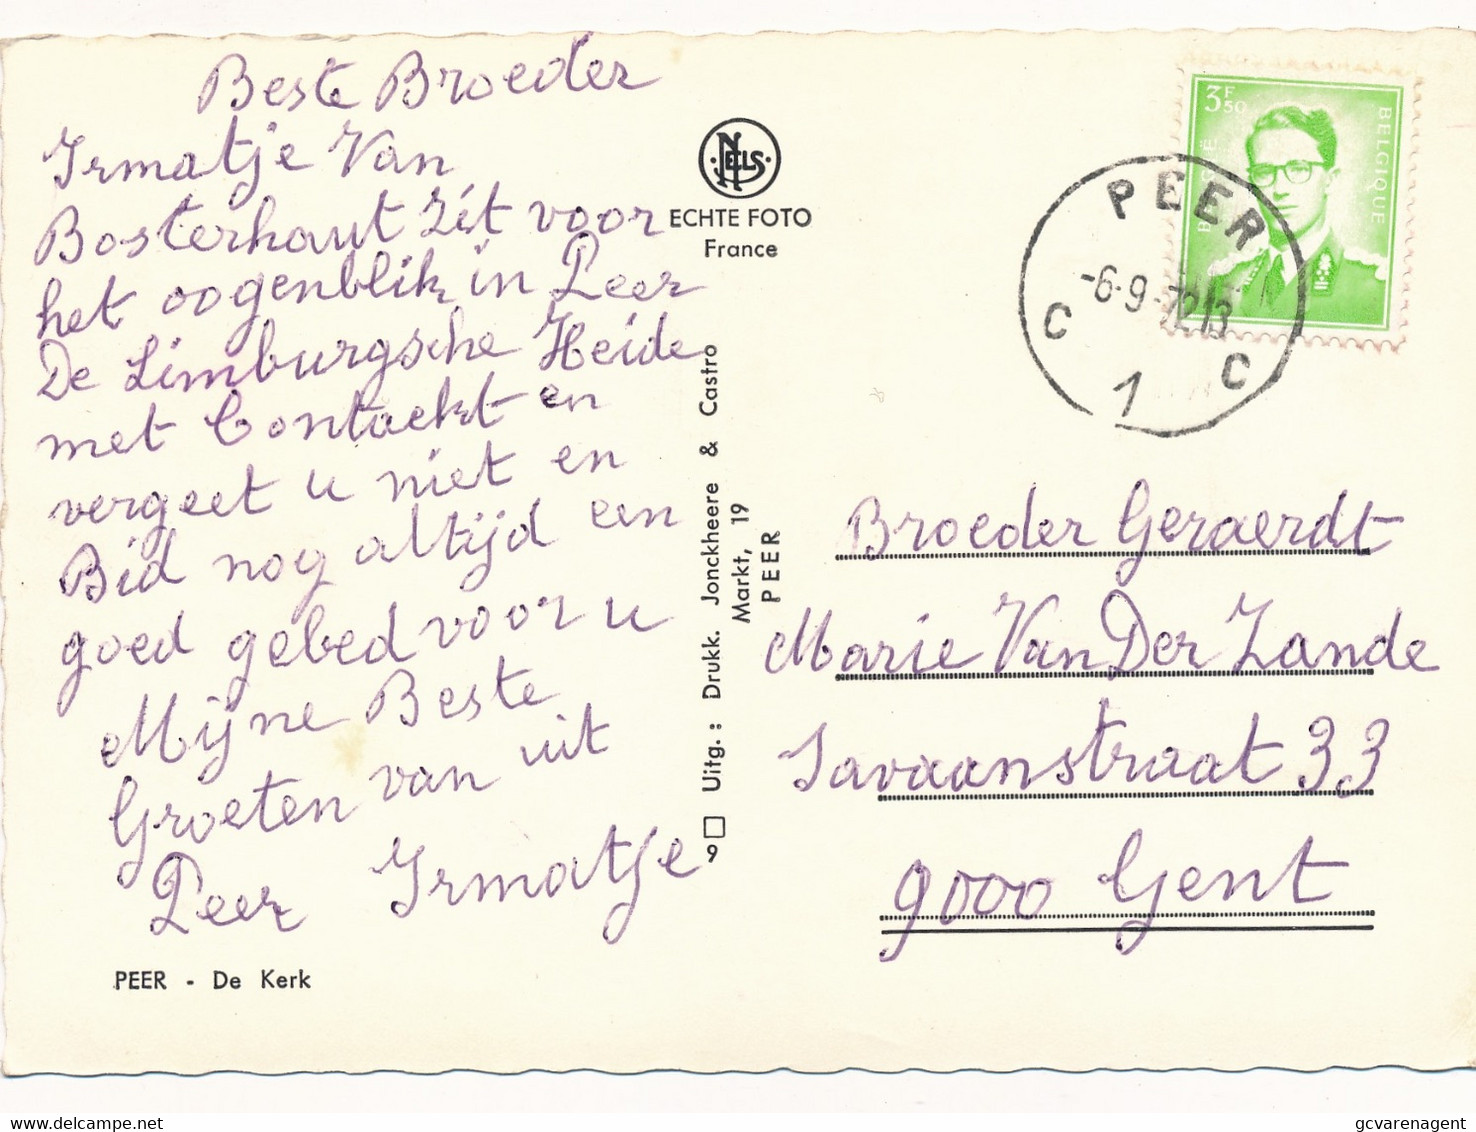 Beste Broeder
Irmatje Van
Bosterhaut Zit voor
het oogenblik in Peer
De Limburgsche Heide
met Contackt en
vergeet u niet en
Bid nog altijd een
goed gebed voor u
Mijne Beste
Groeten van uit
Peer Irmatje
PEER - De Kerk
NELS
ECHTE FOTO
France
Uitg.: Drukk. Jonckheere & Castro
Markt, 19
PEER
9
3F50
BELGIQUE
PEER
-6-9-72 13
C 1 C
Broeder Geraerdt
Marie Van Der Zande
Savaanstraat 33
9000 Gent
gcvarenagent